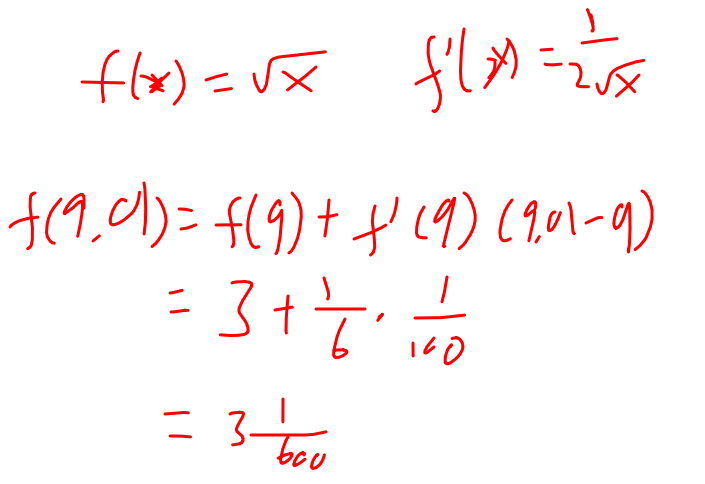 f(x) = √x f'(x) = 1/(2√x)
f(9.01) = f(9) + f'(9) (9.01 - 9)
= 3 + 1/6 · 1/100
= 3 1/600